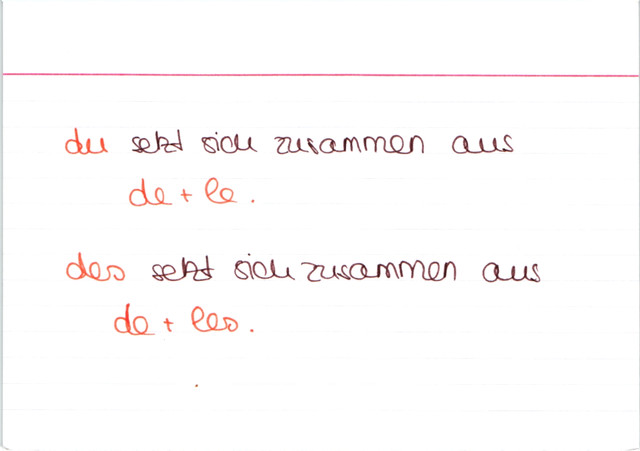 du setzt sich zusammen aus
de + le.
des setzt sich zusammen aus
de + les.